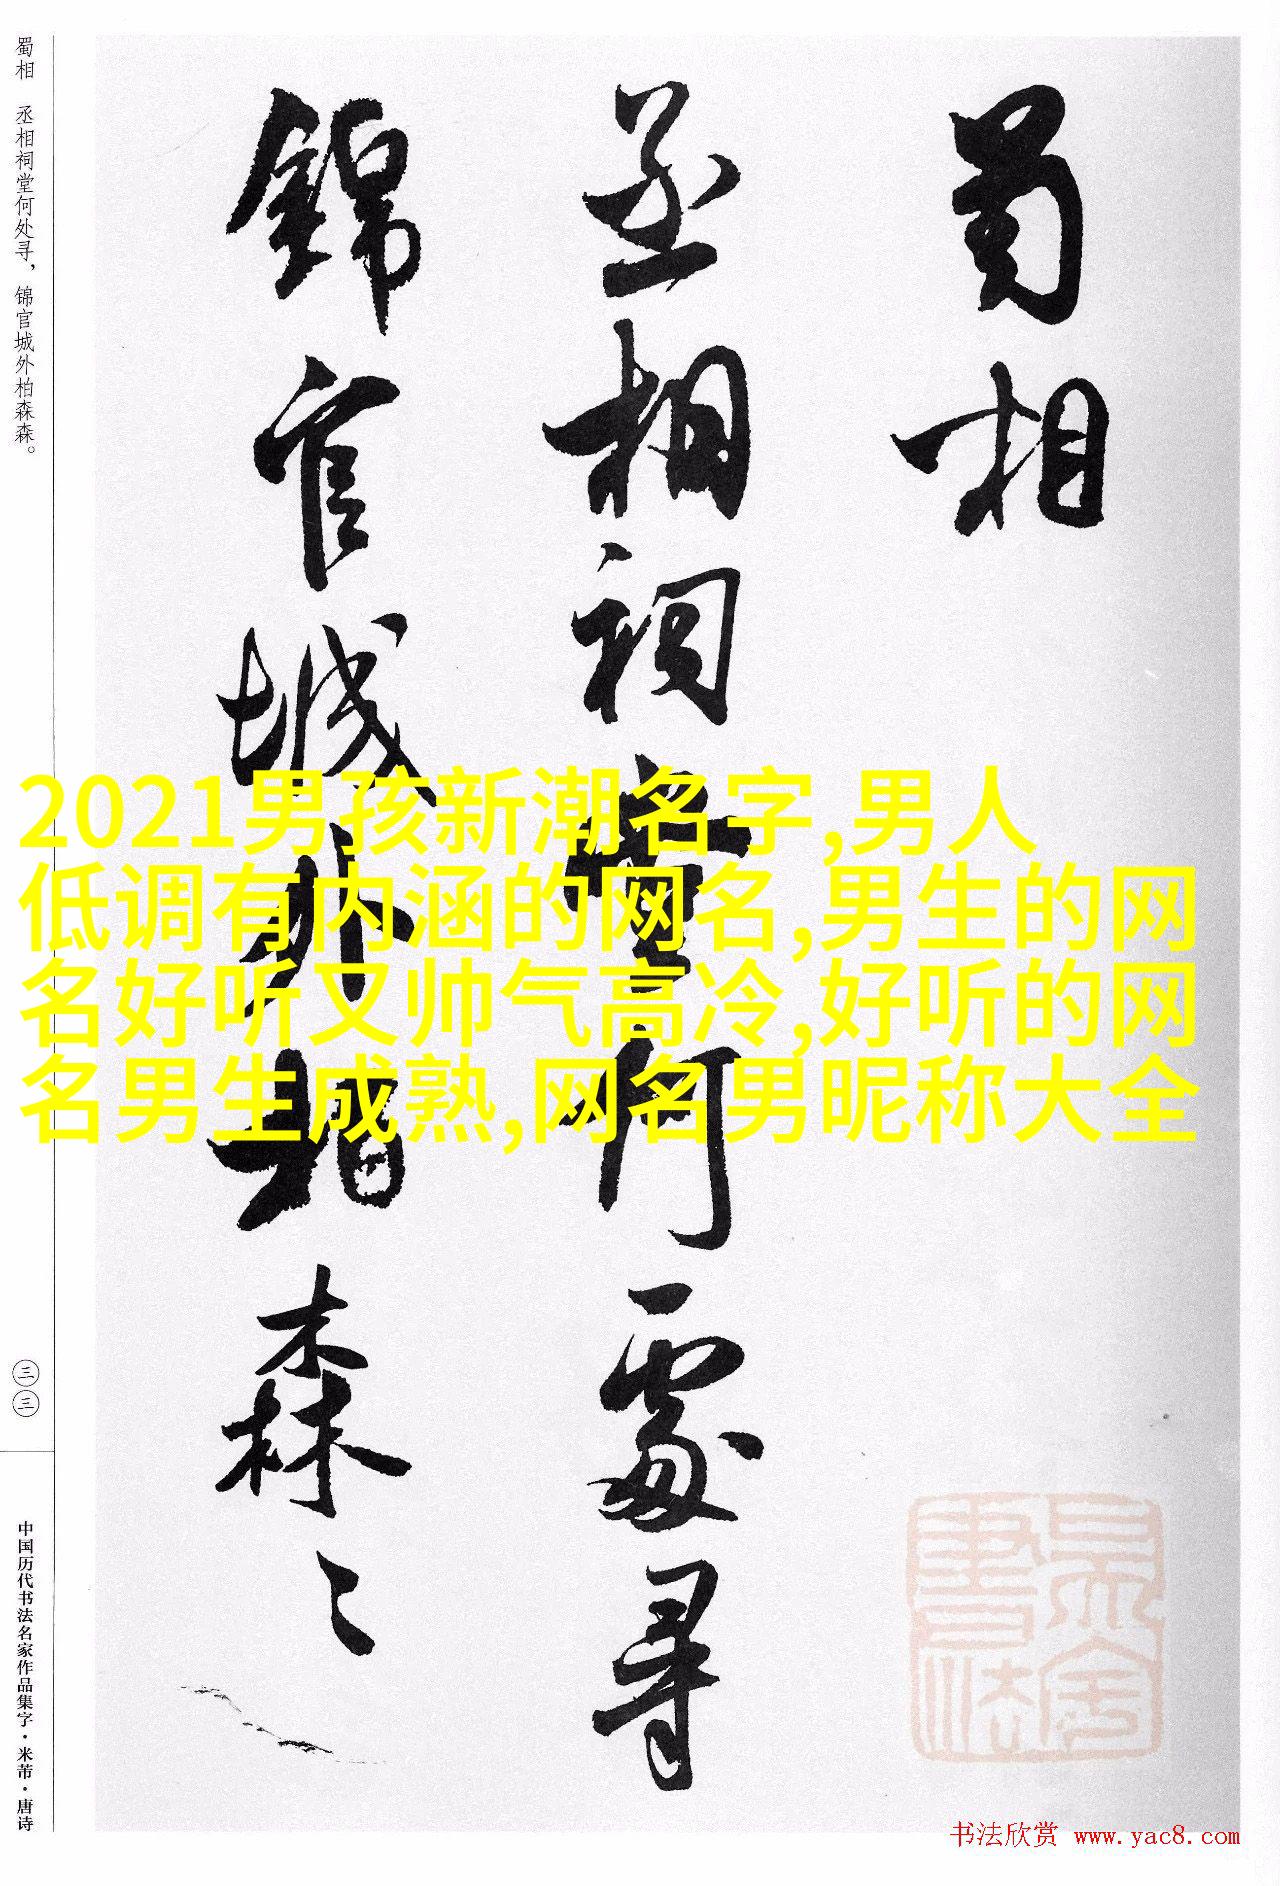 蜀相
丞相祠堂何處寻
錦官城外柏森々
蜀相 丞相祠堂何处寻，锦官城外柏森森。
三三
中国历代书法名家作品集字·米芾·唐诗
2021男孩新潮名字,男人
低调有内涵的网名,男生的网
名好听又帅气高冷,好听的网
名男生成熟,网名男昵称大全
书法欣赏 www.yac8.com